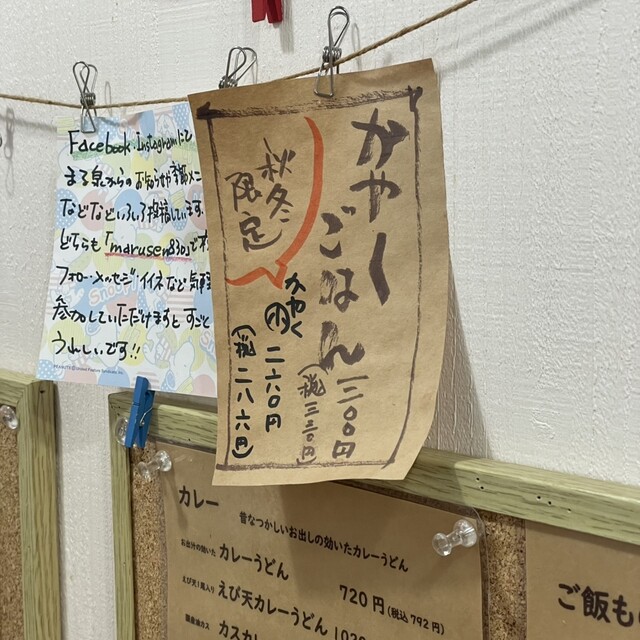 Facebook・Instagramにて
まる泉からのお知らせや季節メニ
などなどいろいろ投稿しています。
どちらも「marusen830」で
フォロー・メッセージ・イイネなど気軽
参加していただけますと すごく
うれしいです!!
かやくごはん
三〇〇円
(税三三〇円)
秋冬
限定
かやく
二六〇円
(税二八六円)
カレー
昔なつかしいお出しの効いたカレーうどん
お出汁の効いた カレーうどん
720円(税込792円)
えび天1尾入り えび天カレーうどん
ご飯も